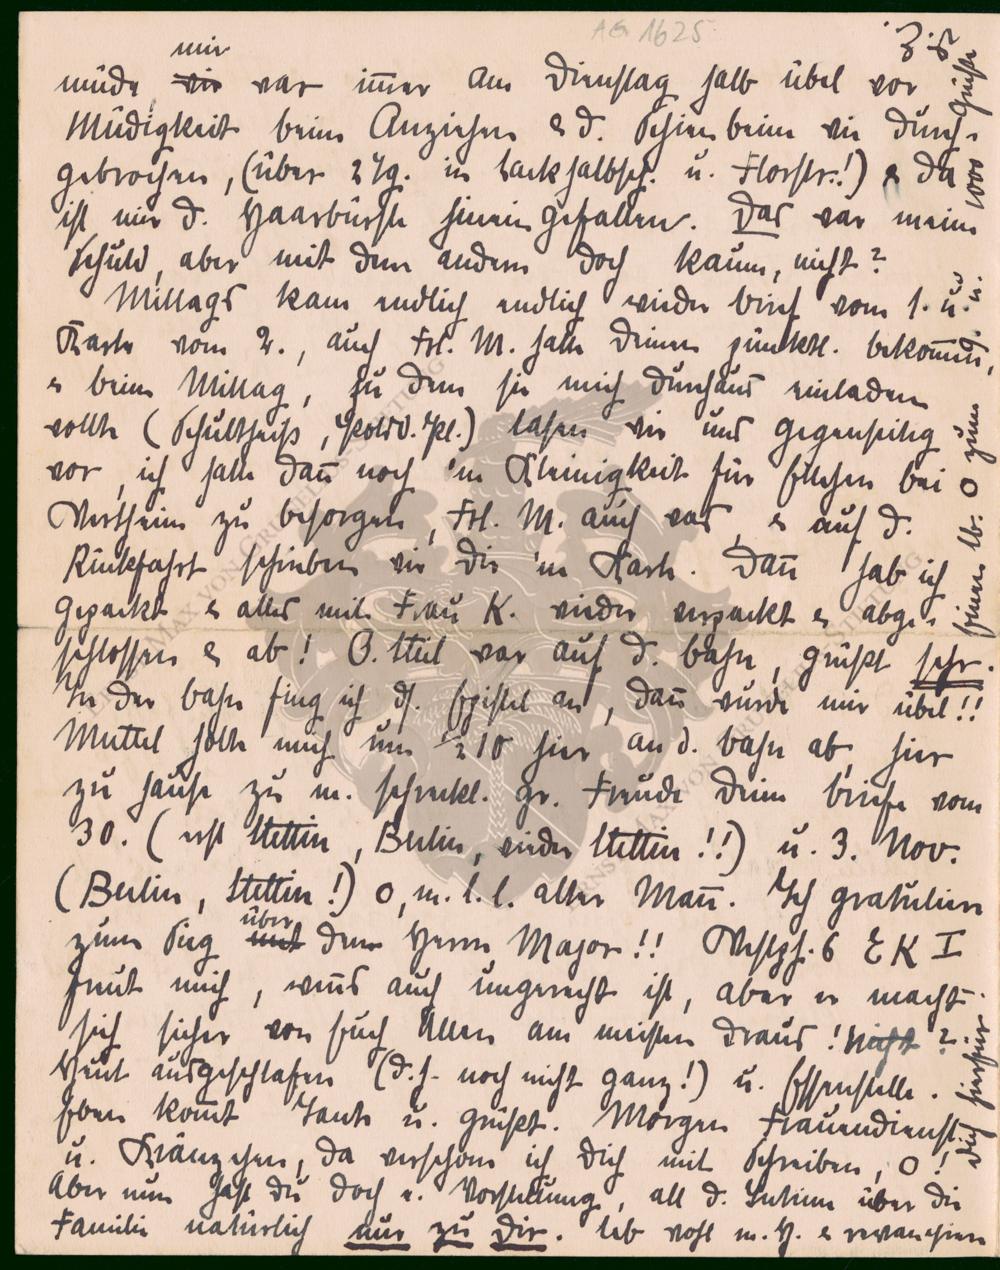 AG 1625
mir
müde wie war immer am Dienstag halb übel vor
Müdigkeit beim Anziehen & d. Schienbeine wie durch-
gebrochen, (über 2 Tg. in Lackhalbsch. u. Florstr.!) & da
ist mir d. Haarbürste hineingefallen. Das war meine
Schuld, aber mit dem andern doch kaum, nicht?
Mittags kam endlich endlich wieder Brief vom 1. u.
Karte vom 2., auch Frl. M. hatte Deinen pünktl. bekommen,
& beim Mittag, zu dem sie mich durchaus einladen
wollte (Schultheiss, Potsd. Pl.) lasen wir uns gegenseitig
vor, ich hatte dann noch 'ne Kleinigkeit für bei
Wertheim zu besorgen, Frl. M. auch was, & auf d.
Rückfahrt schrieben wir Dir 'ne Karte. Dann hab ich
gepackt & alles mit Frau K. wieder verpackt & abge-
schlossen & ab! O. war auf d. Bahn, grüsst sehr.
In der Bahn fing ich ds. Epistel an, dann wurde mir übel!!
Muttel holte mich um ½10 hier an d. Bahn ab, hier
zu Hause zu m. schreckl. gr. Freude Deine Briefe vom
30. (erst Stettin, Berlin, wieder Stettin!!) u. 3. Nov.
(Berlin, Stettin!) O, m. l. l. alter Mann. Ich gratuliere
über
zum Sieg mit dem Herrn Major!! 6 EK I
freut mich, wenns auch ungerecht ist, aber er macht
sich sicher von Euch Allen am meisten draus! Nicht?
Heut ausgeschlafen (d.h. noch nicht ganz!) u. Essenstelle.
Eben kommt Tante u. grüsst. Morgen Frauendienst
u. Kränzchen, da verschone ich Dich mit Schreiben, O!
Aber nun hast Du doch e. Vorstellung, all d. Intime über die
Familie natürlich nur zu Dir. Leb wohl m. H. &
Grüsse
1000